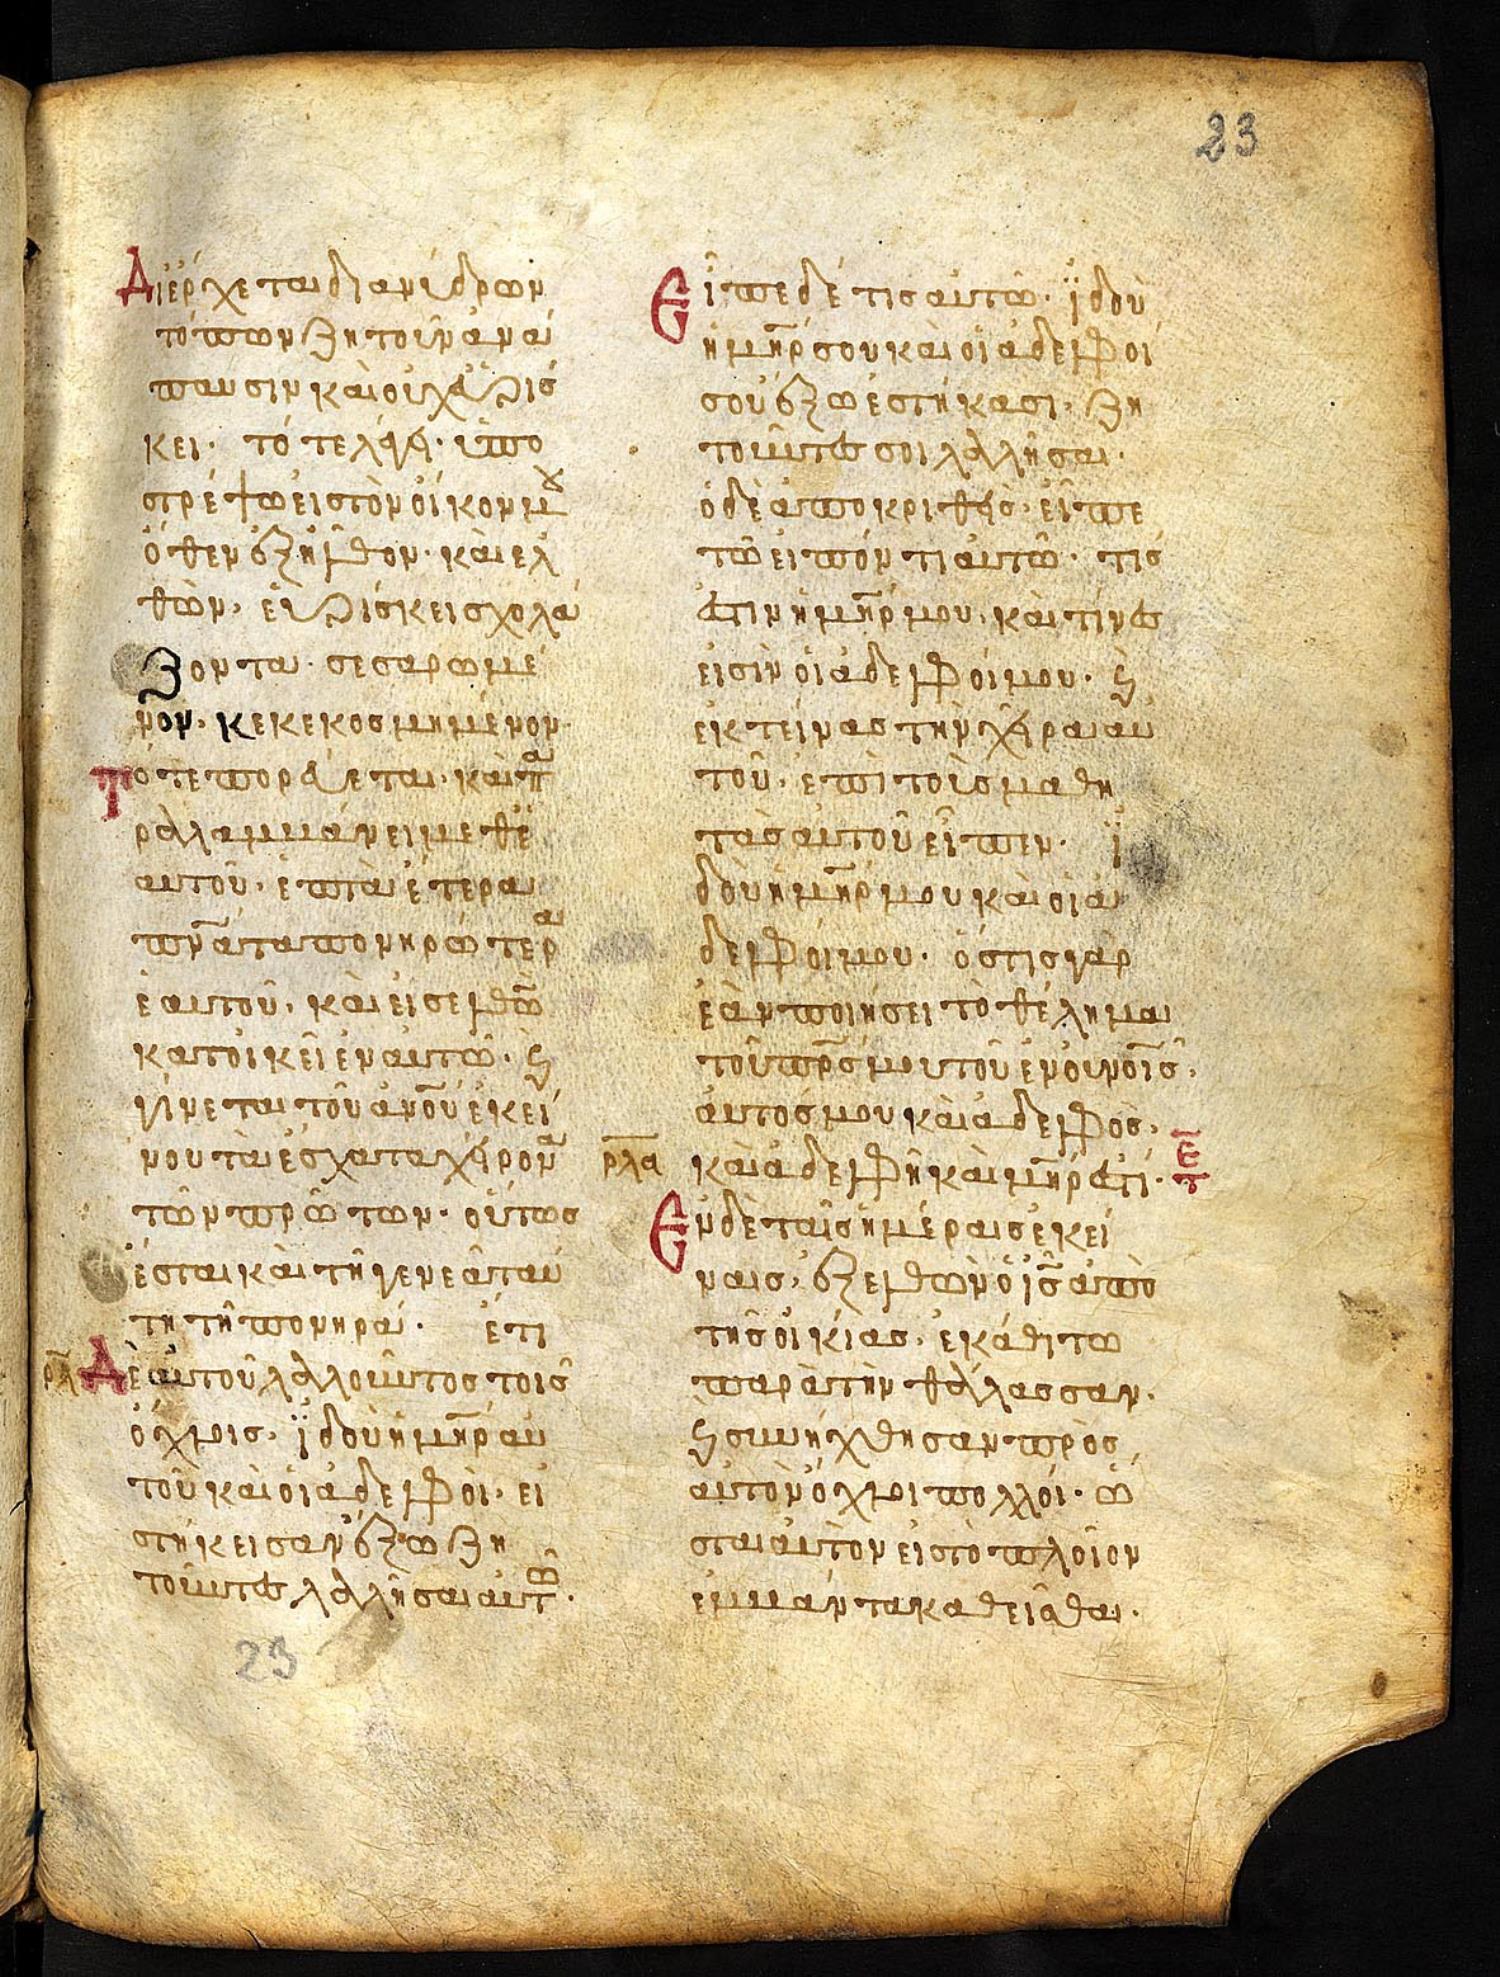 23
Διέρχεται δι ανύδρων
τόπων ζητοῦν ἀνά
παυσιν καὶ οὐχ εὑρίσ
κει· τότε λέγει· ὑπο
στρέψω εἰς τὸν οἶκόν μου
ὅθεν ἐξῆλθον· καὶ ἐλ
θὼν, εὑρίσκει σχολά
ζοντα· σεσαρωμέ
νον, κε κεκοσμημένον·
τότε πορεύεται· καὶ πα
ραλαμμάνει μεθ ἑ
αυτοῦ, ἑπτὰ ἕτερα
πν̅ατα πονηρώτερα
ἑαυτοῦ, καὶ εἰσελθὼν
κατοικεῖ ἐν αυτῶ· ϗ
γίνεται τοῦ ἀν̅ου ἐκεί
νου τὰ ἔσχατα χείρονα
τῶν πρώτων· οὕτως
ἔσται καὶ τῆ γενεᾶ ταύ
τη τῆ πονηρᾶ· ἔτι
ρλ Δὲ αὐτοῦ λαλοῦντος τοῖς
ὄχλοις, ϊδοὺ ἡ μη̅ρ αὐ
τοῦ καὶ οἱ ἀδελφοὶ· εἱ
στήκεισαν ἔξω ζη
τοῦντες λαλῆσαι αὐτῶ·
23
Εἶπε δέ τις αὐτῶ· ϊδοὺ
ἡ μη̅ρ σου καὶ οἱ ἀδελφοί
σου ἔξω ἑστήκασι, ζη
τοῦντές σοι λαλῆσαι·
ὁ δὲ ἀποκριθεὶς· εἶπε
τῶ εἰπόντι αὐτῶ· τίς
ἐστιν ἡ μη̅ρ μου, καὶ τίνες
εἰσὶν οἱ ἀδελφοί μου· ϗ
ἐκτείνας τὴν χεῖρα αὐ
τοῦ, ἐπὶ τοὺς μαθη
τὰς αὐτοῦ εἶπεν· ϊ
δοὺ ἡ μη̅ρ μου καὶ οἱ ἀ
δελφοί μου· ὅστις γὰρ
ἐὰν ποιήσει τὸ θέλημα
τοῦ πρ̅ς μου τοῦ ἐν οὐνο̅ις,
αὐτός μου καὶ ἀδελφὸς,
ρλα καὶ ἀδελφὴ καὶ μη̅ρ ἐστί· ε̅ τ
Εν δὲ ταῖς ἡμέραις ἐκεί
ναις, ἐξελθὼν ὁ ι̅ς ἀπὸ
τῆς οἰκίας, ἐκάθιτω
παρὰ τὴν θάλασσαν·
ϗ συνήχθησαν πρὸς
αὐτὸν ὄχλοι πολλοί· ὥ
σται αὐτὸν εἰς τὸ πλοῖον
ἐμμάντα καθεῖσθαι·